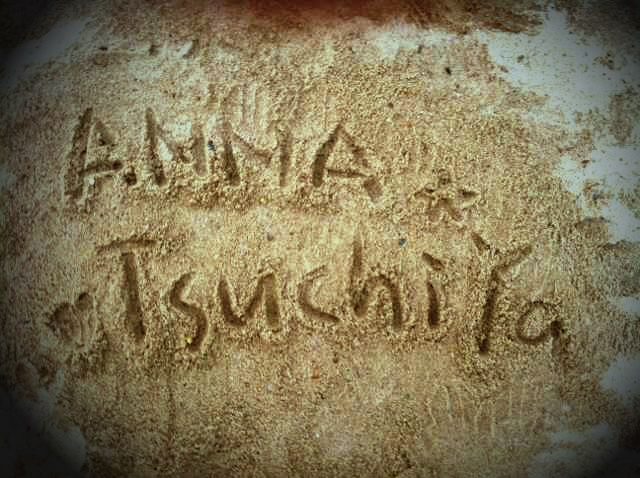 ANNA
TsuchiYa